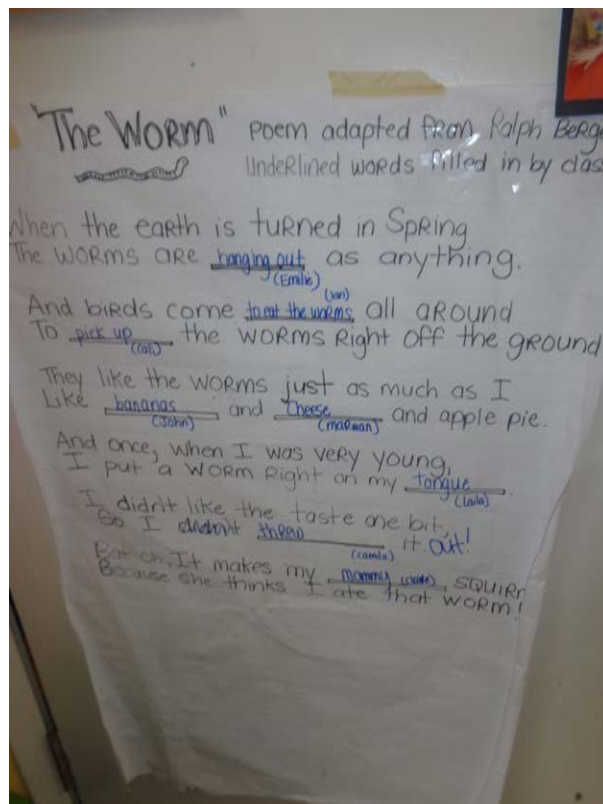 "The Worm" Poem adapted from Ralph Berg
Underlined words filled in by clas
When the earth is turned in Spring
The worms are hanging out as anything.
(Emilie)
(Ian)
And birds come to eat the worms all around
To pick up the worms right off the ground
They like the worms just as much as I
Like bananas and cheese and apple pie.
(John) (Marman)
And once, when I was very young,
I put a worm right on my tongue.
(Laila)
I didn't like the taste one bit,
So I didn't threw it out!
(Camila)
But oh, It makes my mommy squirm
Because she thinks I ate that worm!